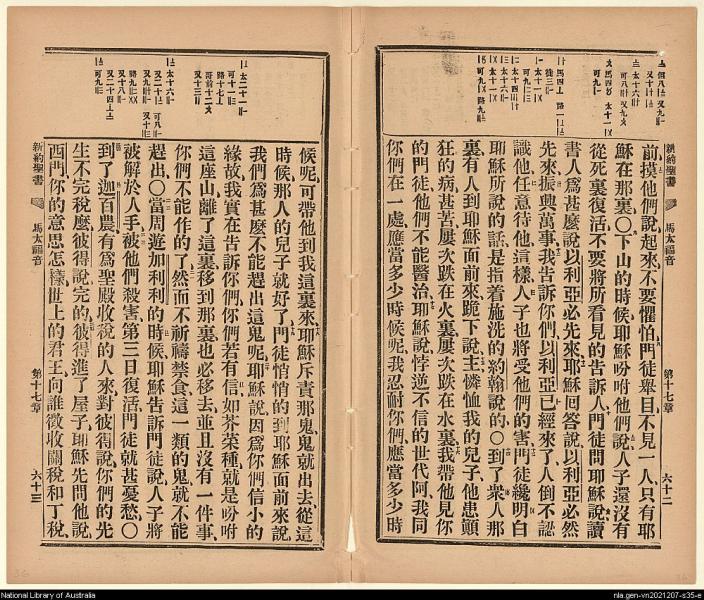 新約聖書
馬太福音
第十七章
六十二
前摸他們說起來不要懼怕門徒舉目不見一人只有耶
穌在那裏〇下山的時候耶穌吩咐他們說人子還沒有
從死裏復活不要將所看見的告訴人門徒問耶穌說讀
書人爲甚麼說以利亞必先來耶穌回答說以利亞必然
先來振興萬事我告訴你們以利亞已經來了人倒不認
識他任意待他這樣人子也將受他們的害門徒纔明白
耶穌所說的話是指着施洗的約翰說的〇到了衆人那
裏有人到耶穌面前來跪下說主憐恤我的兒子他患顚
狂的病甚苦屢次跌在火裏屢次跌在水裏我帶他見你
的門徒他們不能醫治耶穌說悖逆不信的世代阿我同
你們在一處應當多少時候呢我忍耐你們應當多少時
候呢可帶他到我這裏來耶穌斥責那鬼鬼就出去從這
時候那人的兒子就好了門徒悄悄的到耶穌面前來說
我們爲甚麼不能趕出這鬼呢耶穌說因爲你們信小的
緣故我實在告訴你們你們若有信如芥菜種就是吩咐
這座山離了這裏移到那裏也必移去並且沒有一件事
你們不能作的了然而不祈禱禁食這一類的鬼就不能
趕出〇當周遊加利利的時候耶穌告訴門徒說人子將
被解於人手被他們殺害第三日復活門徒就甚憂愁〇
到了迦百農有爲聖殿收稅的人來對彼得說你們的先
生不完稅麼彼得說完的彼得進了屋子耶穌先問他說
西門你的意思怎樣世上的君王向誰徵收關稅和丁稅
新約聖書
馬太福音
第十七章
六十三
National Library of Australia
nla.gen-vn2021207-s35-e